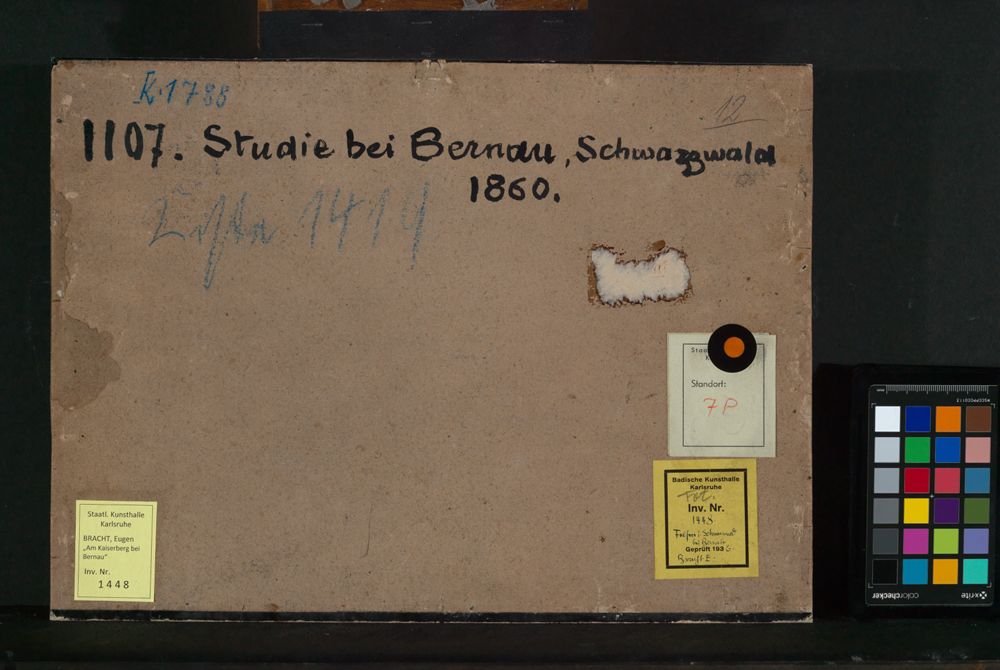 K. 1788
12
1107. Studie bei Bernau, Schwarzwald
1860.
1414
Staa
K
Standort:
7P
Badische Kunsthalle
Karlsruhe
Inv. Nr.
1448
bei Bernau
Geprüft 193
Staatl. Kunsthalle
Karlsruhe
BRACHT, Eugen
„Am Kaiserberg bei
Bernau"
Inv. Nr.
1448
colorchecker x-rite
MSCCPPCC0113